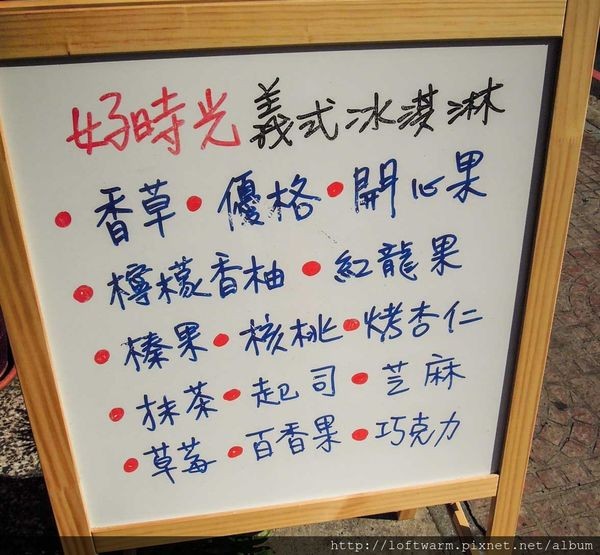 好時光 義式冰淇淋
• 香草 • 優格 • 開心果
• 檸檬香柚 • 紅龍果
• 榛果 • 核桃 • 烤杏仁
• 抹茶 • 起司 • 芝麻
• 草莓 • 百香果 • 巧克力
http://loftwarm.pixnet.net/album